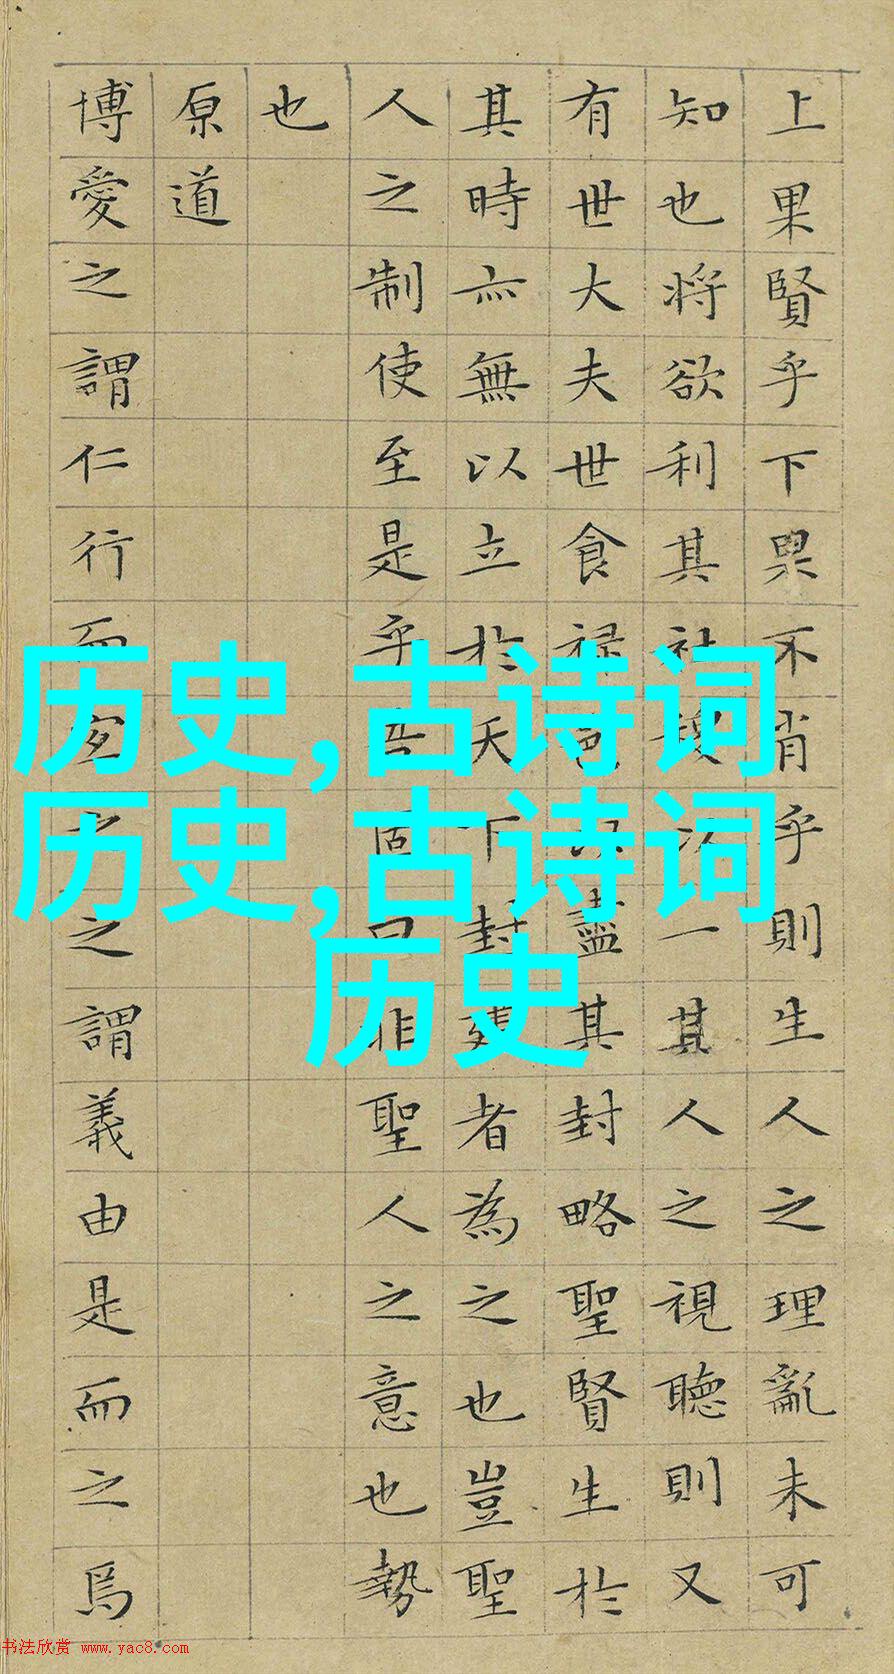 上果賢乎下果不肖乎則生人之理亂未可
知也將欲利其社稷以一其人之視聽則又
有世大夫世食祿邑以盡其封略聖賢生於
其時亦無以立於天下封建者為之也豈聖
人之制使至是乎吾固曰非聖人之意也勢
也
原道
博愛之謂仁行而宜之之謂義由是而之焉
历史,古诗词
历史,古诗词
历史
书法欣赏 www.yac8.com